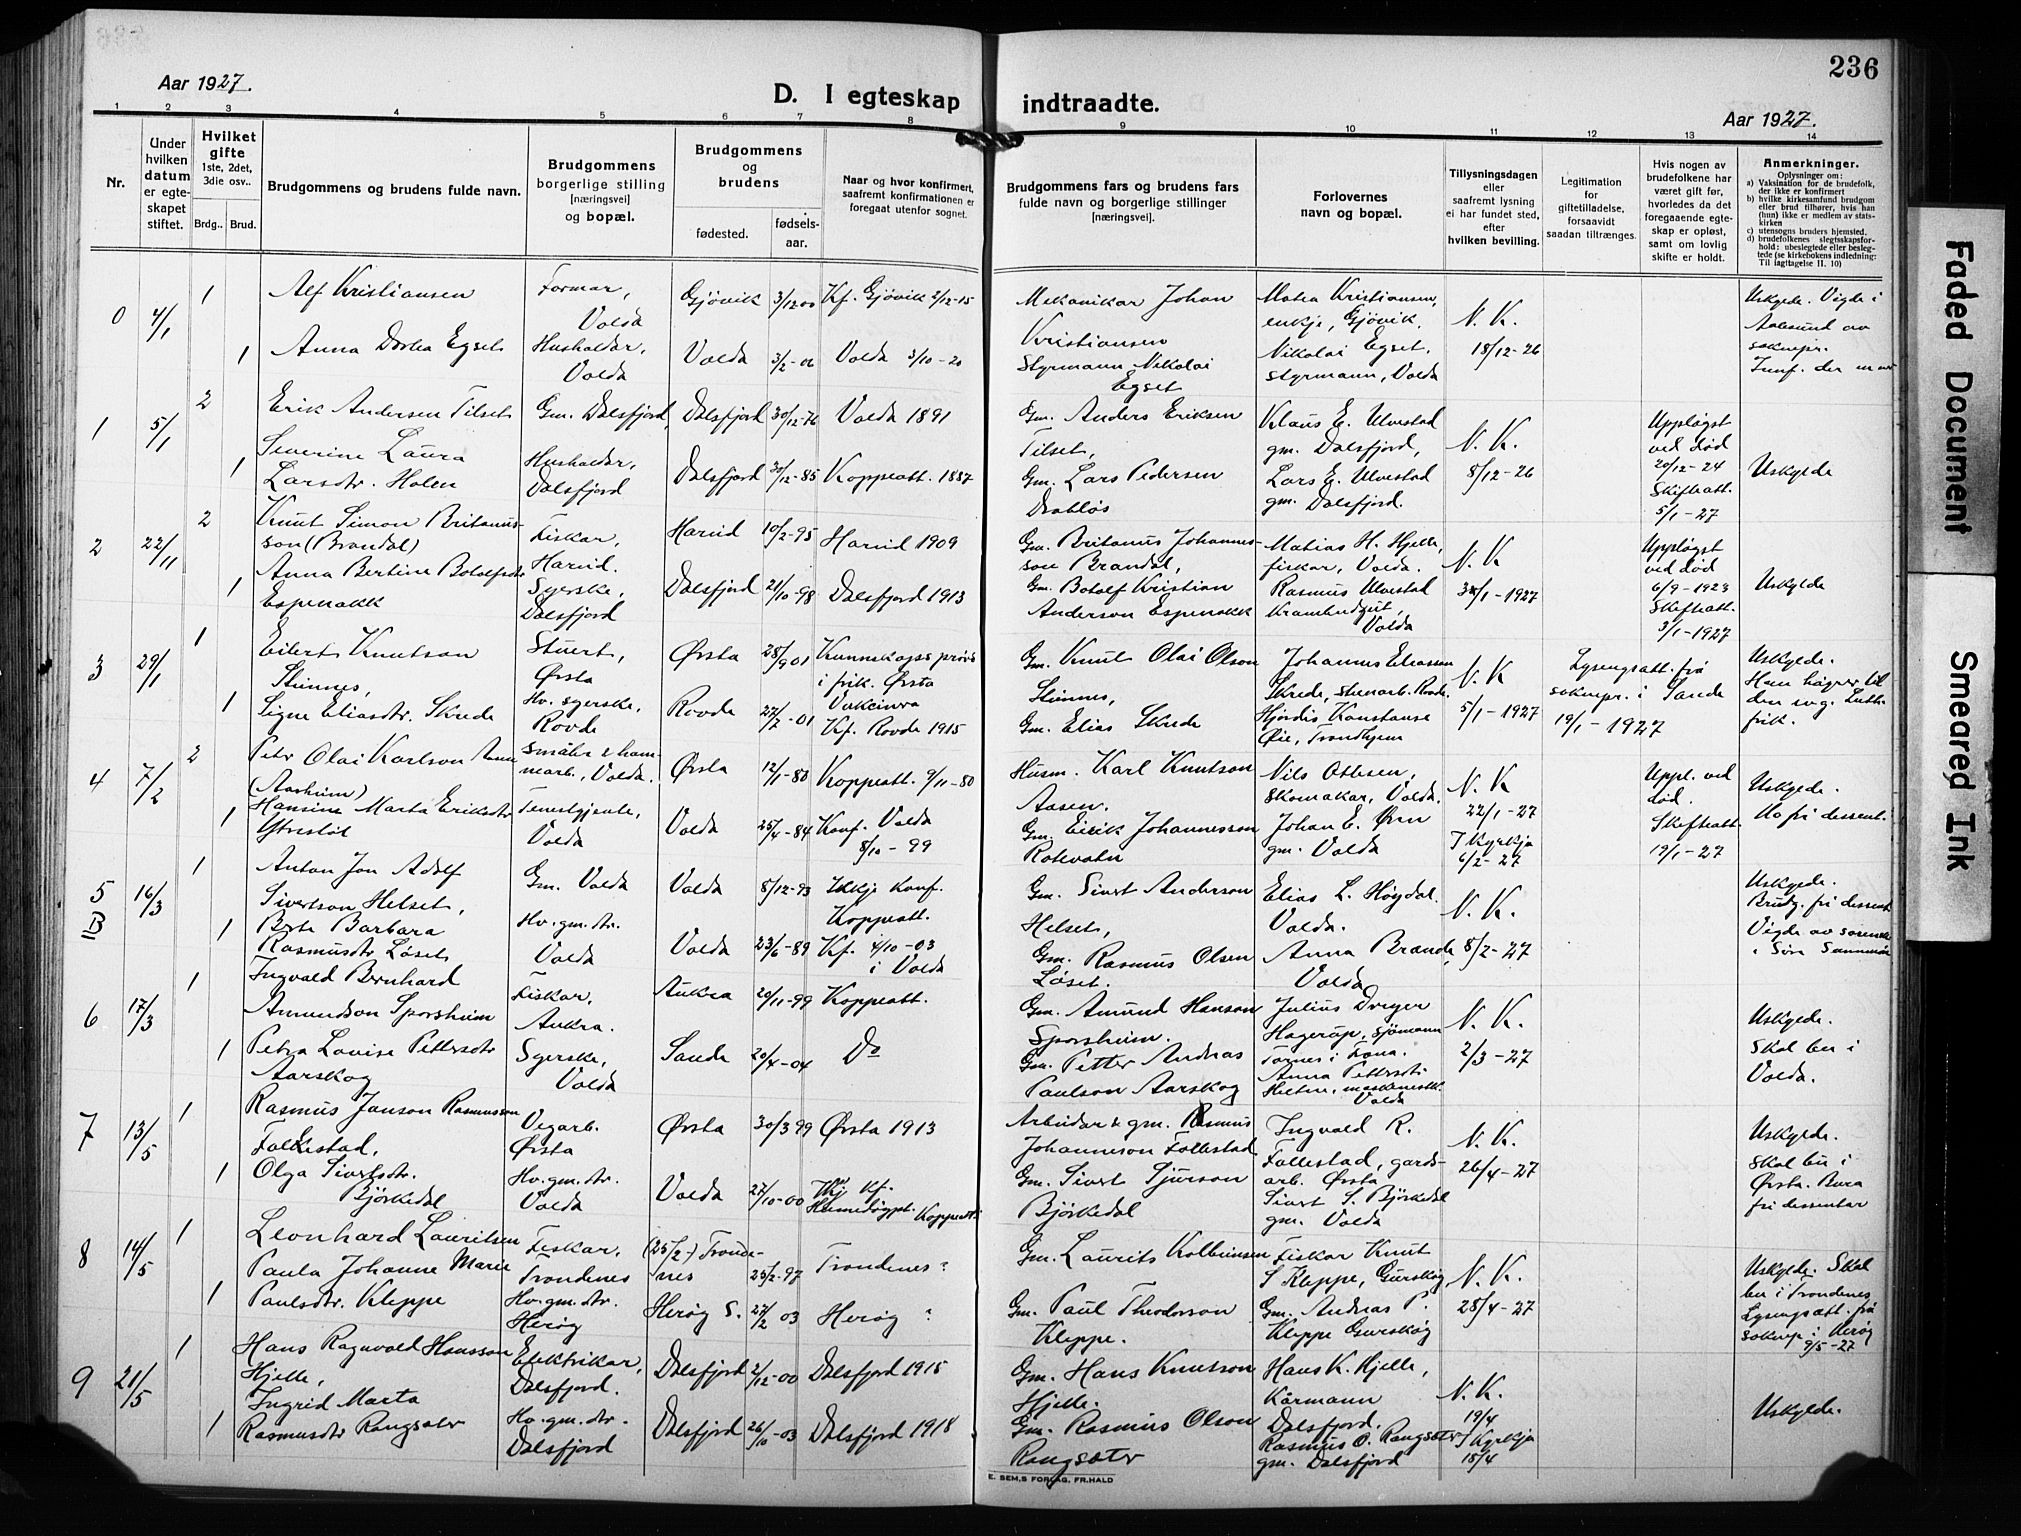 236
Aar 1927.
D. I egteskap indtraadte.
Aar 1927.
1 2 3 4 5 6 7 8 9 10 11 12 13 14
Nr.
Under hvilken datum er egteskapet stiftet.
Hvilket gifte 1ste, 2det, 3die osv..
Brdg.. Brud.
Brudgommens og brudens fulde navn.
Brudgommens borgerlige stilling [næringsvei] og bopæl.
Brudgommens og brudens
fødested. fødsels-aar.
Naar og hvor konfirmert, saafremt konfirmationen er foregaat utenfor sognet.
Brudgommens fars og brudens fars fulde navn og borgerlige stillinger [næringsvei].
Forlovernes navn og bopæl.
Tillysningsdagen eller saafremt lysning ei har fundet sted, efter hvilken bevilling.
Legitimation for giftetilladelse, forsaavidt saadan tiltrænges.
Hvis nogen av brudefolkene har været gift før, hvorledes da det foregaaende egteskap er opløst, samt om lovlig skifte er holdt.
Anmerkninger.
Oplysninger om:
a) Vaksination for de brudefolk, der ikke er konfirmert
b) hvilke kirkesamfund brudgom eller brud tilhører, hvis han (hun) ikke er medlem av statskirken
c) utensogns bruders hjemsted.
d) brudefolkenes slegtsskapsforhold: ubeslegtede eller beslegtede (se kirkebokens indledning: Til iagttagelse II. 10)
0 4/1 1 Alf Kristiansen Formar, Volda Gjövik 3/12 00 Kf. Gjövik 2/12-15 Mekanikar Johan Kristiansen Matea Kristiansen, enkje, Gjövik. N. K. 18/12-26 Uskylde. Vigde i Aalesund av soknepr.
1 Anna Dortea Egset Husholdar, Volda Volda 3/2-06 Volda 3/10-20 Styrmann Nikolai Egset Nikolai Egset, styrmann, Volda
1 5/1 2 Erik Andersen Tilset Gm. Dalsfjord, Dalsfjord 30/12-76 Volda 1891 Gm. Anders Eriksen Tilset, Klaus E. Ulvestad gm. Dalsfjord, N. K. 8/12-26 Uppløgst ved død 20/12-24 Skifteatt. 5/1-27 Uskylde
1 Severine Laura Larsdtr. Holen Husholdar, Dalsfjord Dalsfjord 30/12-85 Koppeatt. 1887 Gm. Lars Pedersen Drabløs Lars E. Ulvestad gm. Dalsfjord.
2 22/11 2 Knut Simon Britanusson (Brandal) Fiskar, Hareid. Hareid 10/2-95 Hareid 1909 Gm. Britanus Johannesson Brandal, Matias H. Hjelle, fiskar, Volda. N. K /1-1927 Uppløgst ved død 6/9-1923 Skifteatt. 3/1-1927 Uskylde
1 Anna Bertine Botolfsdtr Espenakk Syerske, Dalsfjord Dalsfjord 21/10-98 Dalsfjord 1913 Gm. Botolf Kristian Anderson Espenakk Rasmus Ulvestad Volda
3 29/1 1 Eilert Knutson Steinnes, Stuert, Ørsta Ørsta 28/9 01 Kunnskapsprøve i frik. Ørsta Gm. Knut Olai Olson Steinnes, Johannes Eliassen Skrede, stenarb. Rovde. N. K 5/1-1927 Lysingsatt. frå soknepr. i Sande 19/1-1927 Uskylde. Han høyrer til den evg. Luth. frik.
1 Signe Eliasdtr. Skrede Hv. syerske, Rovde Rovde 27/7-01 Kf. Rovde 1915 Gm. Elias Skrede Hjördis Konstanse Øie, Trondhjem
4 7/2 2 Petr Olai Karlson Aasen (Aasheim) Volda. Ørsta 12/1-80 Koppeatt. 9/11-80 Husm. Karl Knutson Aasen. Nils Ottesen, Skomakar, Volda. N. K 22/1-27 I Kyrkja 6/2-27 Uppl. ved død. Skifteatt. 19/1-27 Uskylde. Ho fri dessent.
1 Hansine Marta Eriksdtr Ytrestöl Tenestgjente, Volda Volda 25/4-84 Konf. Volda 8/10-99 Gm. Eirik Johannesson Rotevatn Johan E. Øren gm. Volda
5 B 16/3 1 Anton Jon Adolf Sivertson Helset, Gm. Volda Volda 8/12-93 Ikkje konf. Koppeatt. Gm. Sivert Anderson Helset, Elias L. Høydal. Volda. N. K. 8/2-27 Uskylde. Brudg. fri dessent. Vigde av sorenskr. i Søre Sunnmør
1 Berte Barbara Rasmusdtr Løset Hv. gm. dtr. Volda Volda 23/6-89 Kf. 4/10-03 i Volda Gm. Rasmus Olsen Løset. Anna Brande, Volda
6 17/3 1 Ingvald Bernhard Amundson Sporsheim Fiskar, Aukra. Aukra 20/11-99 Koppeatt. Gm. Amund Hanson Sporsheim. Julius Dreyer Hagerup, sjömann N. K. 2/3-27 Uskylde. Skal bu i Volda.
1 Petra Lovise Pettersdtr Aarskog Syerske, Volda Sande 20/4-04 Do Gm. Petter Andreas Paulson Aarskog Anna Pettersdtr Volda
7 13/5 1 Rasmus Janson Rasmusson Follestad, Vegarb. Ørsta Ørsta 30/3 99 Ørsta 1913 Arbeidar & gm. Rasmus Johanneson Follestad Ingvald R. Follestad, gardsarb. Ørsta N. K. 26/4-27 Uskylde. Skal bu i Ørsta. Brura fri dessentar
1 Olga Sivertsdtr. Björkedal Hv. gm. dtr. Volda Volda 27/10-00 Ikkj kf. Heimedöypt. Koppeatt. Gm. Sivert Sjurson Björkedal Sivert S. Björkedal gm. Volda
8 14/5 1 Leonhard Lauritsen Fiskar, Trondenes (25/2-) Trondenes 25/2-97 Trondenes? Gm. Laurits Kolbeinsen Fiskar Knut S Kleppe, Gurskøy N. K. 28/4-27 Uskylde. Skal bu i Trondenes. Lysingsatt. frå soknep i Herøy 9/5-27
1 Paula Johanne Marie Paulsdtr. Kleppe Hv. gm. dtr. Herøy Herøy S. 27/2 03 Herøy? Gm. Paul Theodorson Kleppe. Gm. Andreas P. Kleppe Gurskøy
9 21/5 1 Hans Ragnvald Hansson Hjelle, Elektrikar, Dalsfjord. Dalsfjord 2/12-00 Dalsfjord 1915 Gm. Hans Knutson Hjelle. Hans K. Hjelle, Kårmann Dalsfjord. N. K. 19/4 I Kyrkja 15/4 Uskylde.
1 Ingrid Marta Rasmusdtr Rangsæter Hv. gm. dtr. Dalsfjord Dalsfjord 26/10-03 Dalsfjord 1918 Gm. Rasmus Olson Rangsæter Rasmus O. Rangsæter gm. Dalsfjord
E. SEM,S FORLAG, FR.HALD
Faded Document
Smeared Ink